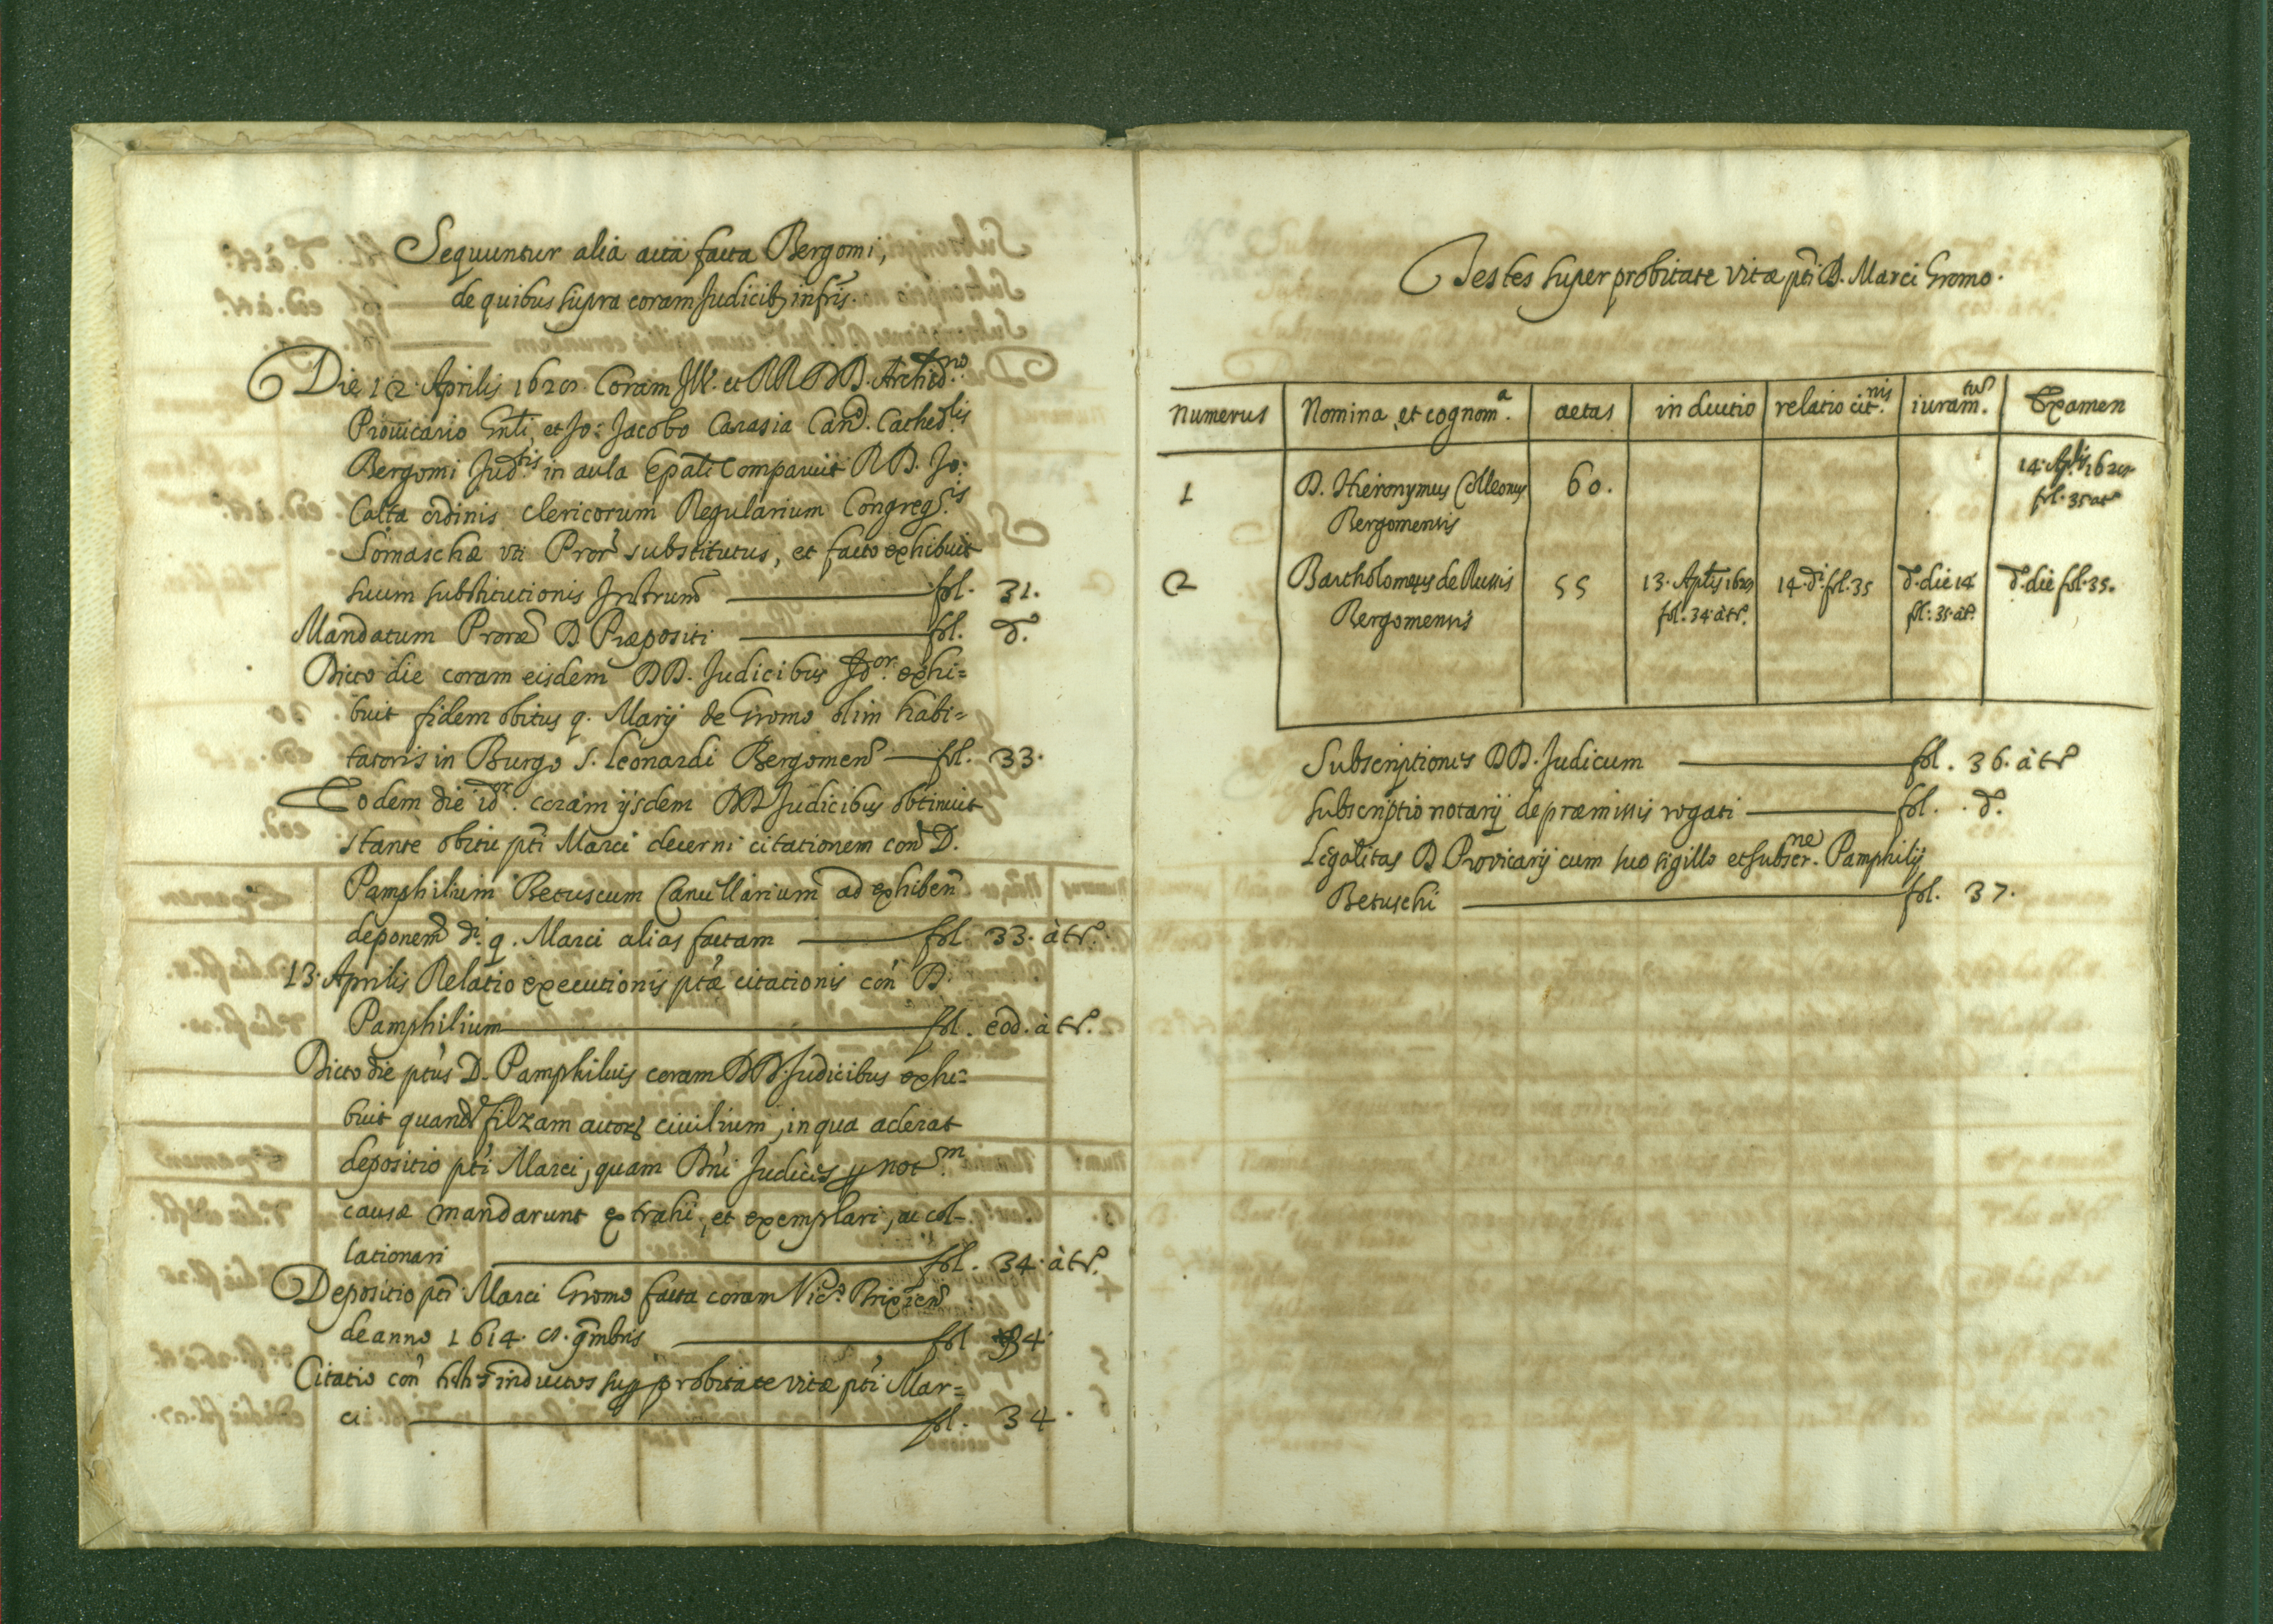 Sequuntur alia acta facta Bergomi,
de quibus supra coram Judicib; infris.
Die 12. Aprilis 162 Coram Ill. et RR DD. Archid.no
Provicario Gnli, et Jo: Jacobo Carasia Can. Cathed.lis
Bergomi Jud.tis in aula Epali Comparuit R D. Jo:
Calta ordinis clericorum Regularium Congreg.is
Somaschæ uti Pror substitutus, et facto exhibuit
suum substitutionis Instrum fol. 31.
Mandatum Proræ D Præpositi fol. d.
Dicto die coram eisdem DD. Judicibus Id.or exhi=
buit fidem obitus q. Marij de Gromo olim habi=
tatoris in Burgo S. Leonardi Bergomen fol. 33.
Eodem die id.or coram ijsdem DD Judicibus obtinuit
stante obitu pti Marci decerni citationem con D.
Pamphilium Betuscum Cancellarium ad exhiben
deponem di. q. Marci alias factam fol. 33. à tr.
13. Aprilis Relatio executionis ptæ citationis con D.
Pamphilium fol. eod. à tr.
Dicto die ptus D. Pamphilus coram DD. Judicibus exhi=
buit quand filzam actor civilium, in qua aderat
depositio pti Marci, quam Dni Judices p not.m
causæ mandarunt extrahi, et exemplari, ac col-
lationari fol. 34. à tr.
Depositio pti Marci Gromo facta coram Vic. Brixien
de anno 1614. 9mbris fol 34
Citatio con inductos sup probitate vitæ pti Mar=
ci fol. 34.
Testes super probitate vitæ pti D. Marci Gromo.
numerus Nomina, et cognom.a aetas inductio relatio cit.nis iuram.tum Examen
1 D. Hieronymus Colleonus 60. 14. Aplis 162 fol. 35 at
Bergomensis
2 Bartholomeus de Russis 55 13. Aplis 162 14. d. fol. 35 d. die 14 d. die fol. 35.
Bergomensis fol. 34 à tr. fol. 35. àt.
Subscriptiones DD. Judicum fol. 36. à tr
Subscriptio notarij de præmissis rogati fol. d.
Legalitas D Provicarij cum suo sigillo et subscr.ne Pamphilij
Betuschi fol. 37.